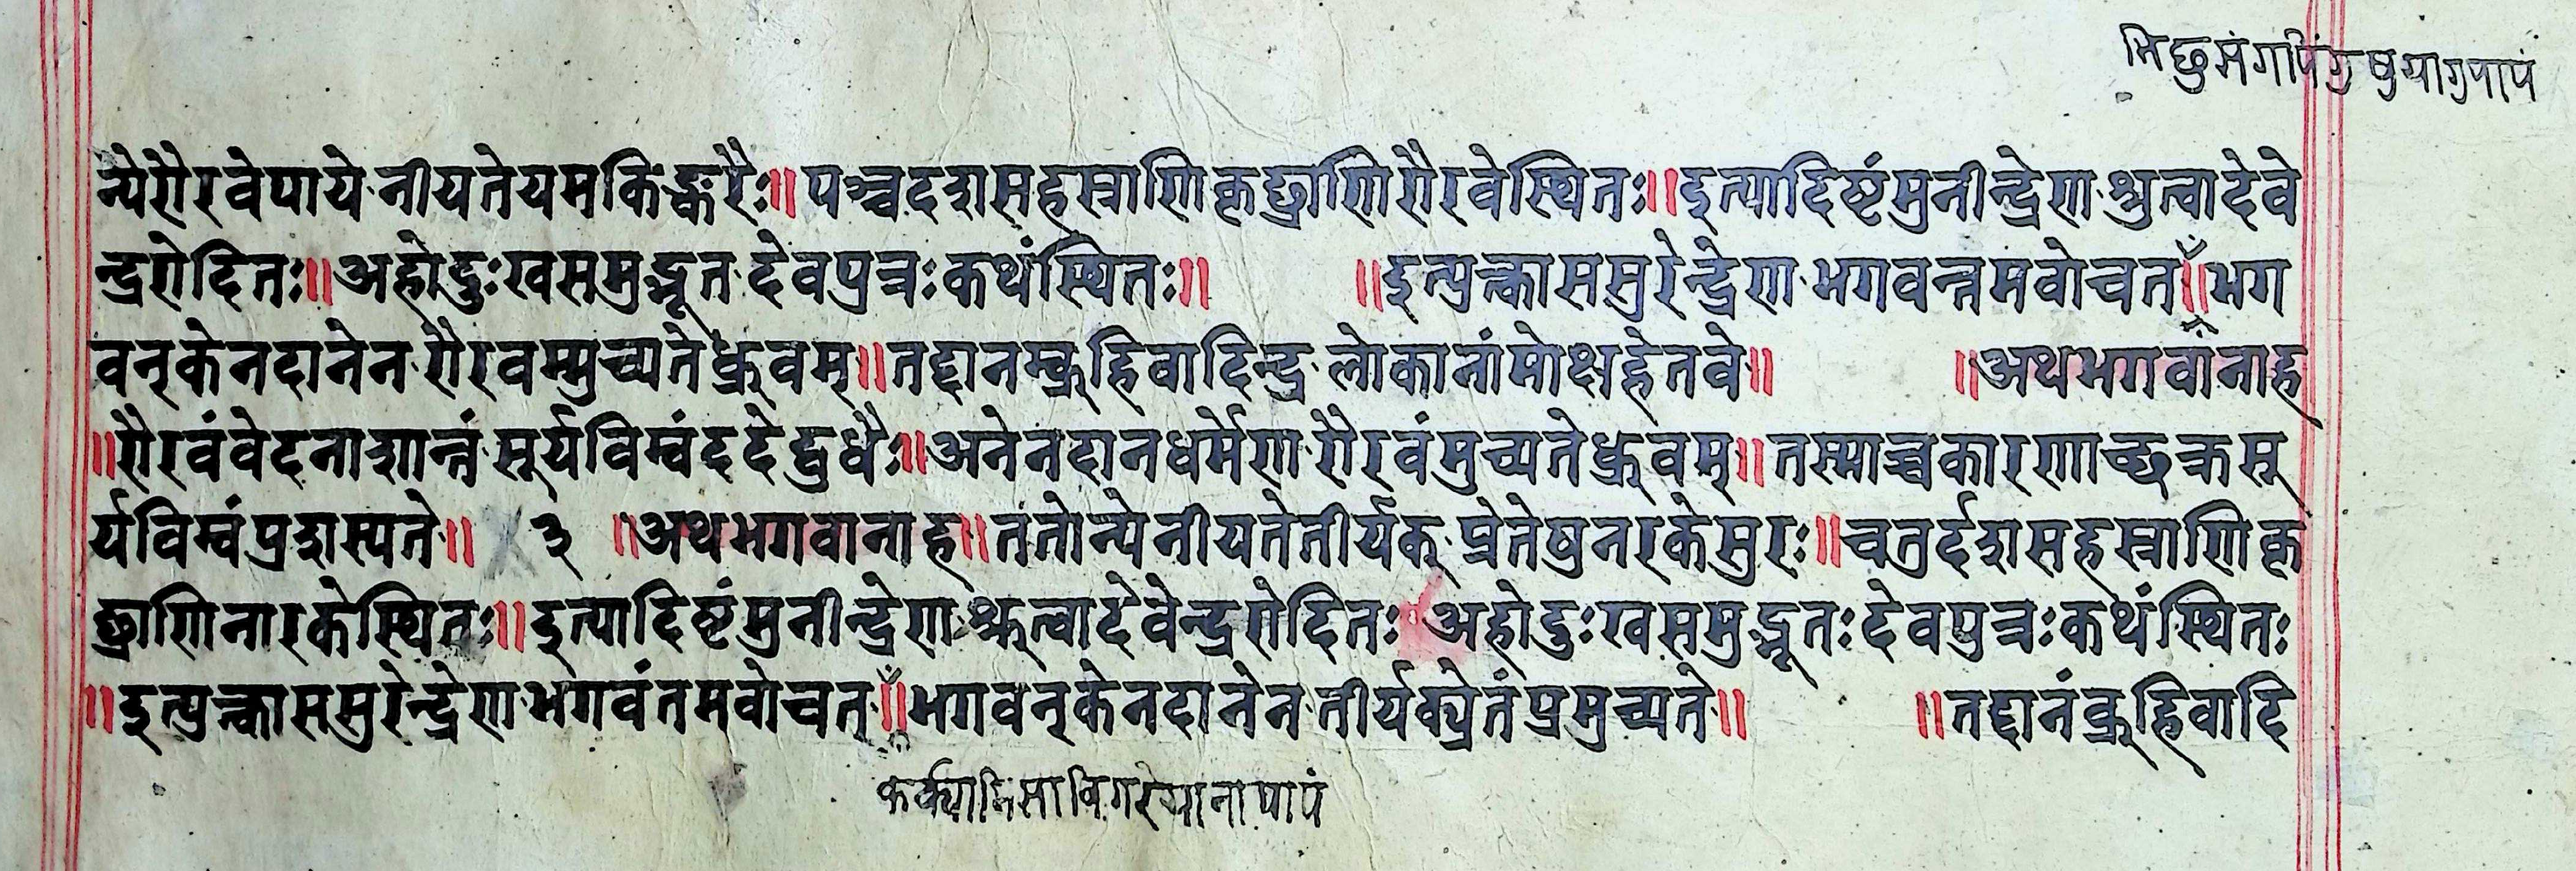 न्येरौरवेपाये नीयतेयमकिङ्करैः॥ पञ्चदशसहस्त्राणिकृछ्राणिरौरवेस्थितः॥ इत्यादिष्टंमुनीन्द्रेण श्रुत्वादेवे
न्द्ररोदितः॥ अहोदुःखसमुद्भूत देवपुत्रःकथंस्थितः॥ ॥इत्युक्त्वाससुरेन्द्रेण भगवन्तमवोचत्॥ भग
वन्केनदानेन रौरवम्मुच्यतेध्रुवम्॥ तद्दानम्ब्रूहिवादिन्द्र लोकानांमोक्षहेतवे॥ ॥अथभगवानाह
॥रौरवंवेदनाशान्तं सूर्यविम्वंददेद्बुधैः॥ अनेनदानधर्मेण रौरवंमुच्यतेध्रुवम्॥ तस्माच्चकारणाच्छक्रसू
र्यविम्वंप्रदास्यते॥ ३ ॥अथभगवानाह॥ ततोन्येनीयतेतीर्यक् प्रेतेषुनरकेसुरः॥ चतुर्दशसहस्त्राणिकृ
छ्राणिनारकेस्थितः॥ इत्यादिष्टंमुनीन्द्रेण श्रुत्वादेवेन्द्ररोदितः अहोदुःखसमुद्भूतः देवपुत्रःकथंस्थितः
॥इत्युक्त्वाससुरेन्द्रेण भगवंतमवोचत्॥ भगवन्केनदानेन तीर्यक्प्रेतंप्रमुच्यते॥ ॥तद्दानंब्रूहिवादि